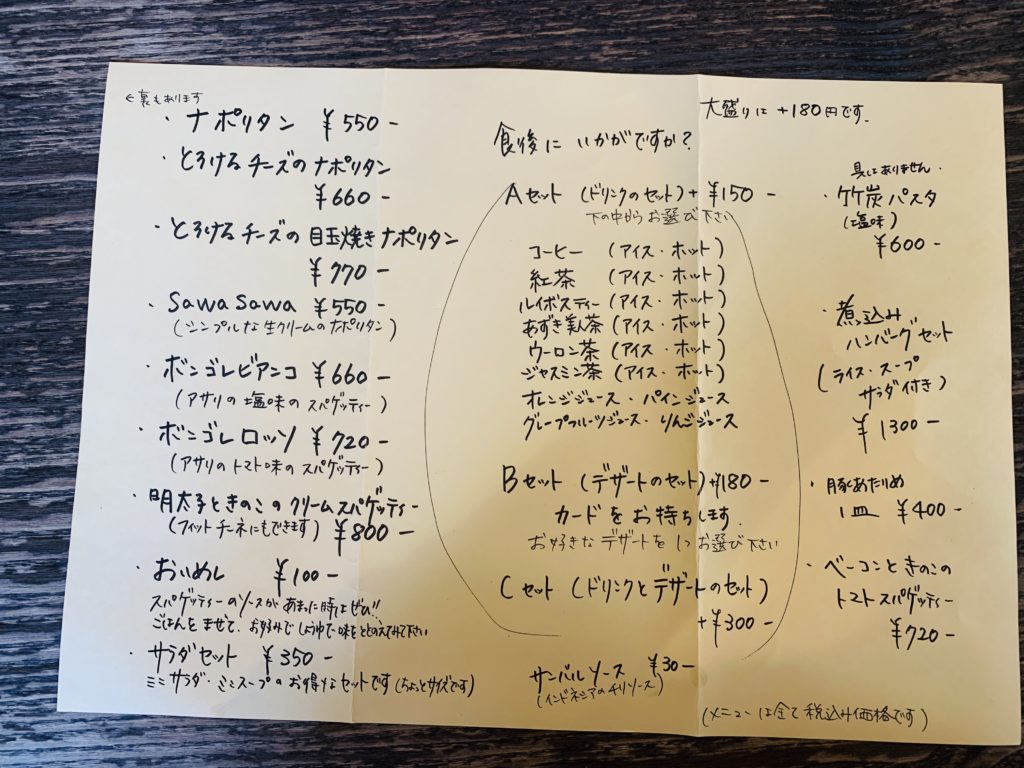 ←裏もあります
・ナポリタン ¥550-
・とろけるチーズのナポリタン
¥660-
・とろけるチーズの目玉焼きナポリタン
¥770-
・sawasawa ¥550-
(シンプルな生クリームのナポリタン)
・ボンゴレビアンコ ¥660-
(アサリの塩味のスパゲッティー)
・ボンゴレロッソ ¥720-
(アサリのトマト味のスパゲッティー)
・明太子ときのこのクリームスパゲッティー
(フィットチーネにもできます) ¥800-
・おいめし ¥100-
スパゲッティーのソースがあまった時はぜひ!!
ごはんをまぜて、お好みでしょうゆで味をととのえてみて下さい
・サラダセット ¥350-
ミニサラダ・ミニスープのお得なセットです(ちょっとサイズです)
食後にいかがですか?
Aセット(ドリンクのセット)+¥150-
下の中からお選び下さい
コーヒー(アイス・ホット)
紅茶(アイス・ホット)
ルイボスティー(アイス・ホット)
あずき美人茶(アイス・ホット)
ウーロン茶(アイス・ホット)
ジャスミン茶(アイス・ホット)
オレンジジュース・パインジュース
グレープフルーツジュース・りんごジュース
Bセット(デザートのセット)+¥180-
カードをお持ちします.
お好きなデザートを1つお選び下さい
Cセット(ドリンクとデザートのセット)
+¥300-
サンバルソース ¥30-
(インドネシアのチリソース)
大盛りは+180円です.
具はありません.
・竹炭パスタ
(塩味)
¥600-
・煮込み
ハンバーグセット
(ライス・スープ
サラダ付き)
¥1300-
・豚あたりめ
1皿 ¥400-
・ベーコンときのこの
トマトスパゲッティー
¥720-
(メニューは全て税込み価格です)